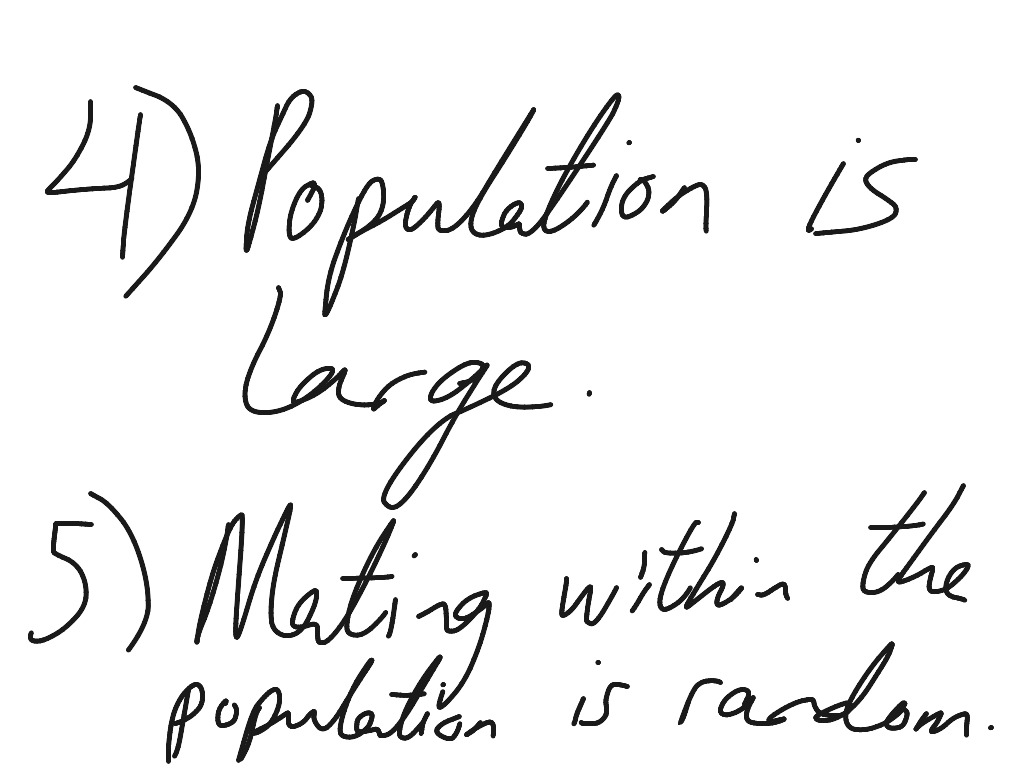 4) Population is
large.
5) Mating within the
population is random.